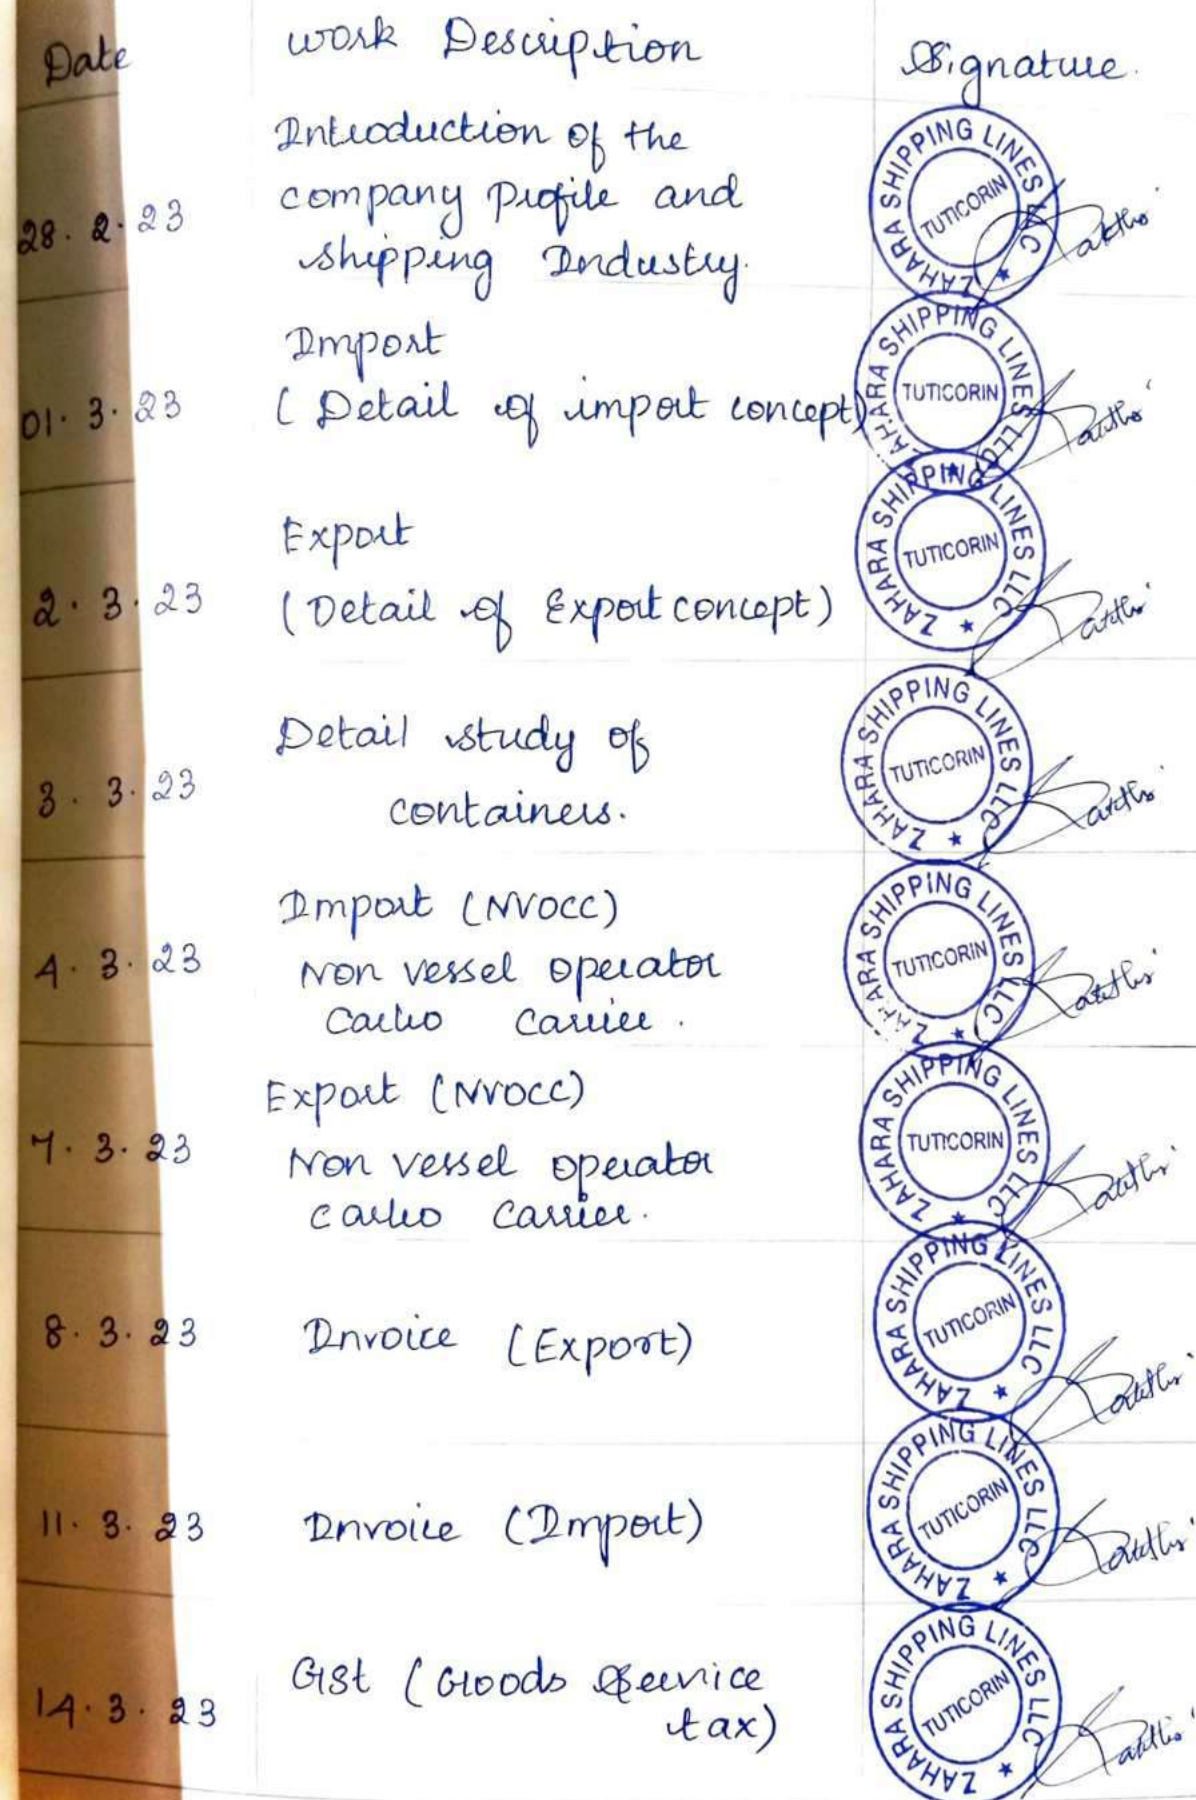 Date work Description Signature.
28. 2. 23
Introduction of the
company Profile and
shipping Industry.
ZAHARA SHIPPING LINES LLC
TUTICORIN
01. 3. 23
Import
( Detail of import concept)
ZAHARA SHIPPING LINES LLC
TUTICORIN
2. 3. 23
Export
( Detail of Export concept )
ZAHARA SHIPPING LINES LLC
TUTICORIN
3. 3. 23
Detail study of
containers.
ZAHARA SHIPPING LINES LLC
TUTICORIN
4. 3. 23
Import (NVOCC)
Non vessel operator
Carho Carrier.
ZAHARA SHIPPING LINES LLC
TUTICORIN
7. 3. 23
Export (NVOCC)
Non vessel operator
carho carrier.
ZAHARA SHIPPING LINES LLC
TUTICORIN
8. 3. 23
Invoice (Export)
ZAHARA SHIPPING LINES LLC
TUTICORIN
11. 3. 23
Invoice (Import)
ZAHARA SHIPPING LINES LLC
TUTICORIN
14. 3. 23
Gst (Goods Service
tax)
ZAHARA SHIPPING LINES LLC
TUTICORIN